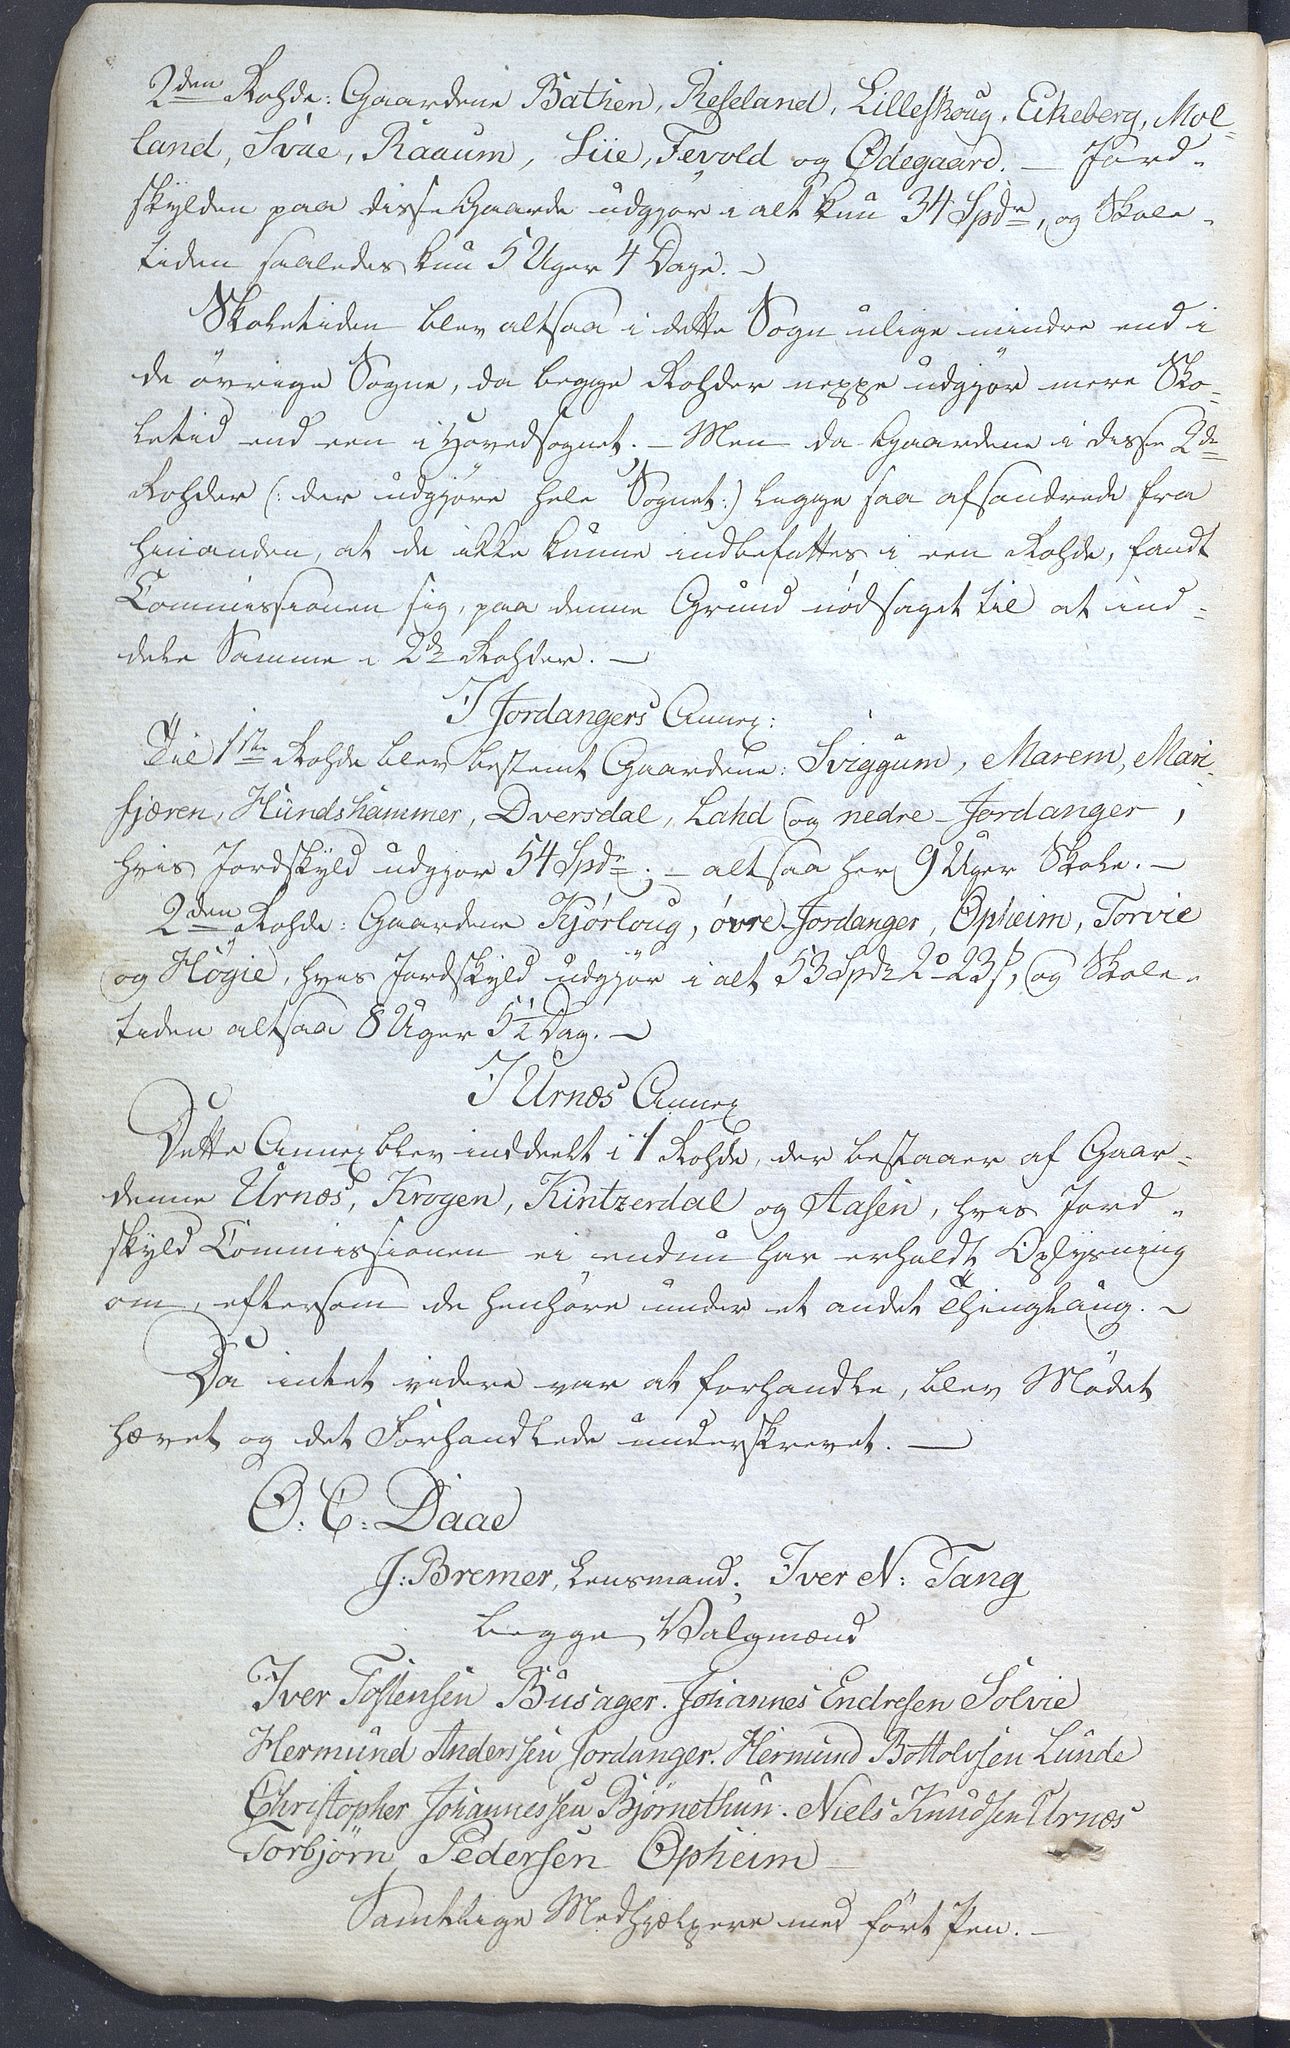 2den Rohde: Gaardene Bathen, Reseland, Lilleskoug, Eikeberg, Mol-
land, Svae, Raaum, Liie, Fevold og Ødegaard. — Jord-
skylden paa disse Gaarde udgjør i alt kun 34 Spdr, og Skole-
tiden saaledes kun 5 Uger 4 Dage. —
Skoletiden blev altsaa i dette Sogn ulige mindre end i
de øvrige Sogne, da begge Rohder neppe udgjør mere Sko-
letid end een i Hovedsognet. — Men da Gaardene i disse 2de
Rohder (: der udgjøre hele Sognet:) ligge saa afsondrede fra
hinanden, at de ikke kunne indbefattes i een Rohde, fandt
Commissionen sig, paa denne Grund nødsaget til at ind-
dele Samme i 2de Rohder. —
I Jordangers Annex:
Til 1ste Rohde blev bestemt Gaardene: Sviggum, Marem, Mari-
fjæren, Hundshammer, Dversdal, Lahd og nedre-Jordanger,
hvis Jordskyld udgjør 54 Spdr; — altsaa her 9 Uger Skole. —
2den Rohde: Gaardene Kjørloug, øvre-Jordanger, Opheim, Torvie
og Høgie, hvis Jordskyld udgjør i alt 53 Spdr 2o 23s, og Skole-
tiden altsaa 8 Uger 5½ Dag. —
I Urnæs Annex
Dette Annex blev inddeelt i 1 Rohde, der bestaaer af Gaar-
denne Urnæs, Krogen, Kintzerdal og Aasen, hvis Jord-
skyld Commissionen ei endnu har erholdt Oplysning
om, eftersom de henhøre under et andet Thinglaug. —
Da intet videre var at forhandle, blev Mødet
hævet og det Forhandlede underskrevet. —
O. C: Daae
J: Bremer, Lensmand. Iver N: Tang
begge Valgmænd
Iver Tostensen Busager. Johannes Endresen Solvie
Hermund Anderssen Jordanger. Hermund Bottolvsen Lunde
Christopher Johannessen Bjørnethun. Niels Knudsen Urnæs
Torbjørn Pedersen Opheim —
Samtlige Medhjælpere med ført Pen. —